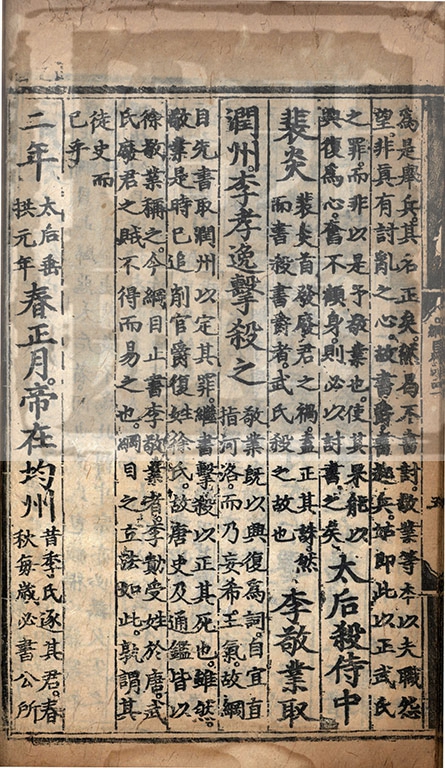 爲是舉兵其名正矣然爲不書討敬業等本以失職怨
望非真有討亂之心故書爵書兵即此以正武氏
之罪而非以是予敬業也使其果能以
興復爲心奮不顧身則必以討書之矣
太后殺侍中
裴炎
裴炎首發廢君之禍盡正其誅然
而書殺書爵者武氏殺之故也
李敬業取
潤州李孝逸擊殺之
敬業既以興復爲詞自宜直
指河洛而乃妄希王氣故綱
目先書取潤州以定其罪繼書擊殺以正其死也雖然
敬業是時已追削官爵復姓徐氏故唐史及通鑑皆以
徐敬業稱之今綱目止書李敬業者李勣受姓於唐武
氏廢君之賊不得而易之也綱目之立法如此孰謂其
徒史而
已乎
二年
太后垂
拱元年
春正月帝在均州
昔季氏逐其君春
秋每歲必書公所